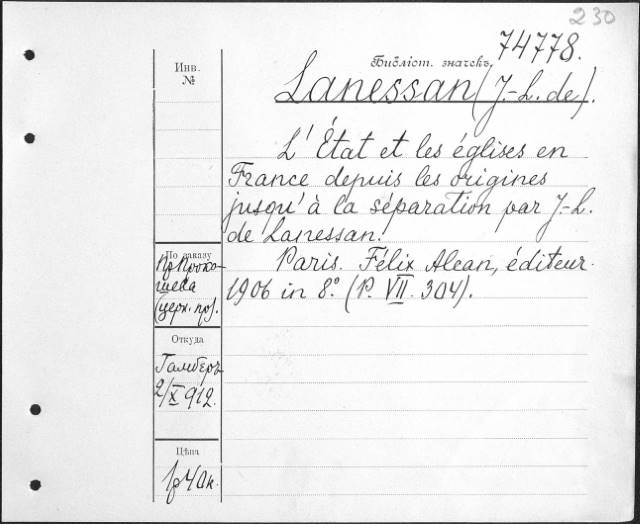 230
74778.
Инв.
№
Библіот. значекъ
Lanessan (J.-L. de).
L'État et les églises en
France depuis les origines
jusqu'à la séparation par J.-L.
de Lanessan.
Paris. Félix Alcan, éditeur.
1906 in 8.º (P. VII. 304).
По заказу
Пр Проко-
шева
(церк. пр).
Откуда
Гамберъ
2/X 912.
Цѣна
1р 40к.